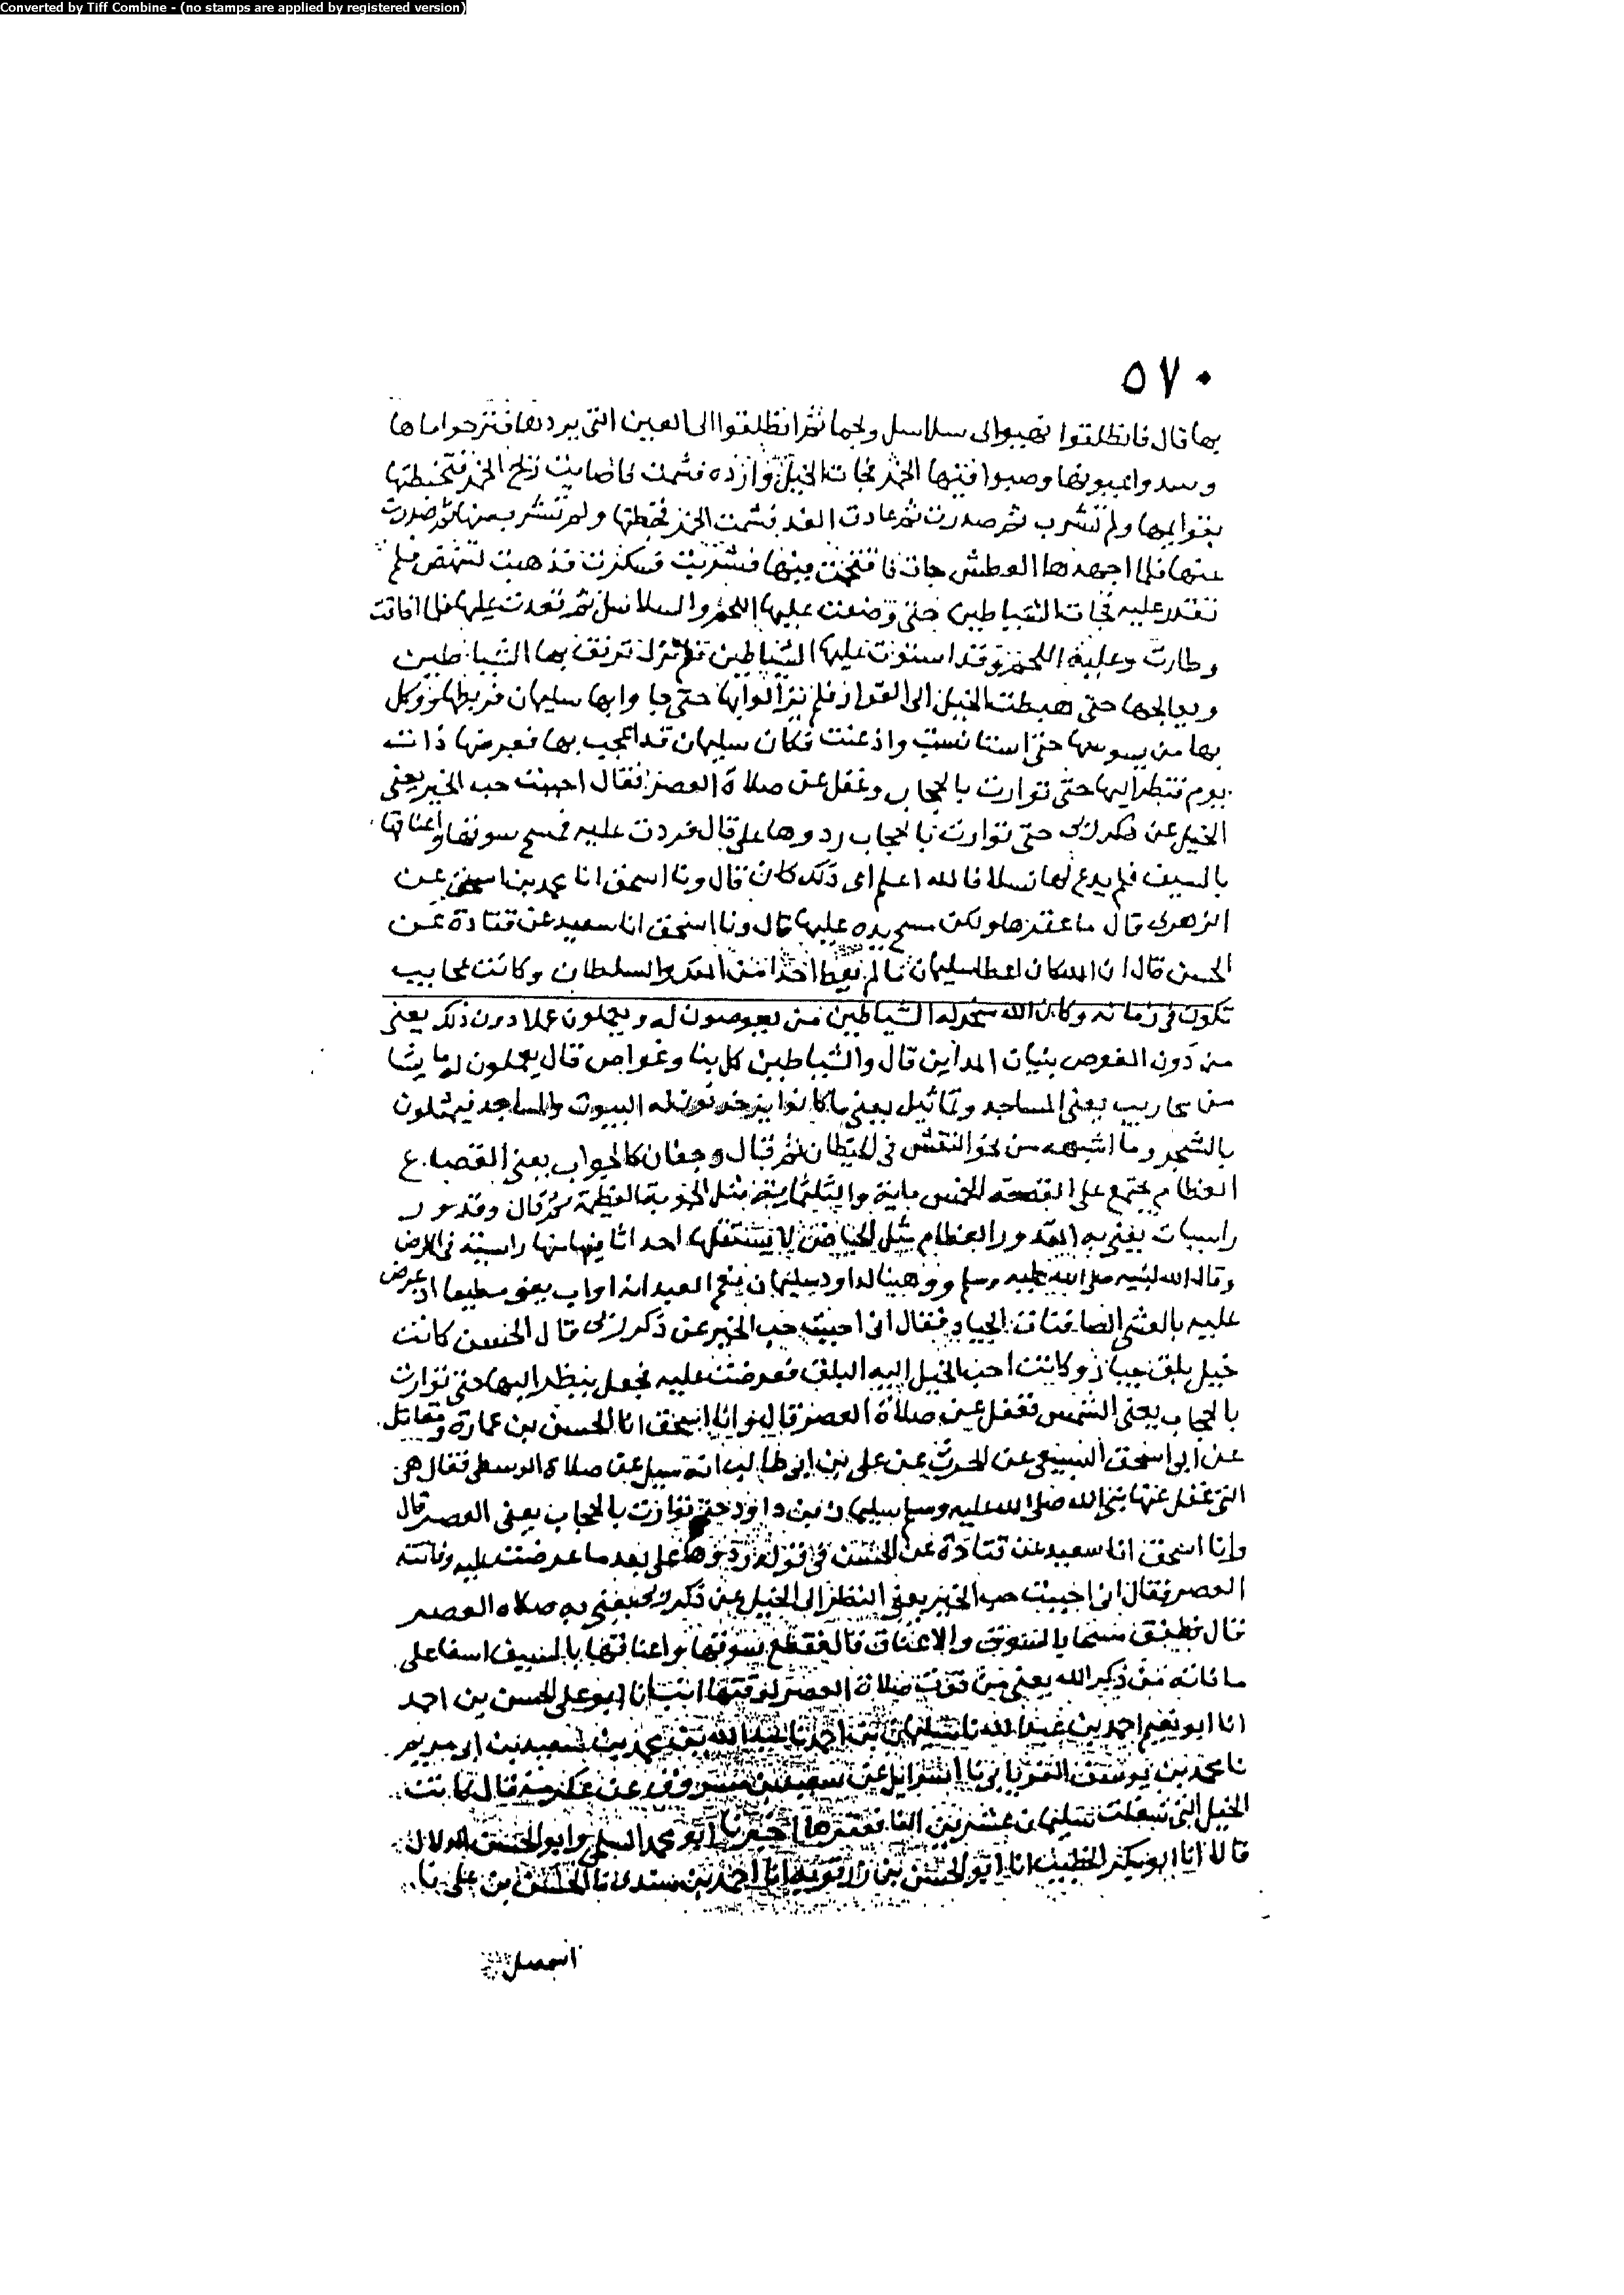 Converted by Tiff Combine - (no stamps are applied by registered version)
٥٧٠
بها قال فانطلقوا فهيوا لى سلاسل ولجما ثم انطلقوا الى العين التى يردها فنزحوا ماها
وسدوا عيونها وصبوا فيها الخمر فجات الخيل واردة فشمت فاصابت ريح الخمر فتخبطتها
بقوايمها ولم تشرب ثم صدرت ثم عادت الغد فشمت الخمر فخبطتها ولم تشرب منها ثم صدرت
عنها فلما اجهدها العطش جات فاقتحمت فيها فشربت فسكرت فذهبت لتنهض فلم
تقدر عليه فجات الشياطين حتى وضعت عليها اللجم والسلاسل ثم قعدت عليها فلما افاقت
وطارت وعليها اللجم وقد استوت عليها الشياطين فلم تزل ترفق بها الشياطين
ويعالجها حتى هبطت الخيل الى القرار فلم يزالوا بها حتى جاوا بها سليمان فربطها ووكل
بها من يسوسها حتى استانست واذعنت فكان سليمان قد اعجب بها فعرضها ذات
يوم فنظر اليها حتى توارت بالحجاب وغفل عن صلاة العصر فقال احببت حب الخير يعنى
الخيل عن ذكر ربى حتى توارت بالحجاب ردوها على قال فردت عليه فمسح سوقها واعناقها
بالسيف فلم يدع لها نسلا فالله اعلم اى ذلك كان قال ونا اسحق انا محمد بن اسحق عن
الزهرى قال ما عقرها ولكن مسح يده عليها قال ونا اسحق انا سعيد عن قتادة عن
الحسن قال ان الله كان اعطا سليمان ما لم يعط احدا من الملك والسلطان وكانت عجايب
تكون فى زمانه وكان الله سخر له الشياطين من يغوصون له ويعملون عملا دون ذلك يعنى
من دون الغوص بنيان المداين قال والشياطين كل بنا وغواص قال يعملون له ما يشا
من محاريب يعنى المساجد وتماثيل يعنى ما كانوا يزخرفون له البيوت والمساجد فيمثلون
بالشجر وما اشبهه من نحو النقش فى الحيطان ثم قال وجفان كالجواب يعنى القصاع
العظام يجتمع على القصعة الخمس ماية والثلثماية مثل الجوبة العظيمة ثم قال وقدور
راسيات يعنى به القدور العظام مثل الحياض لا يستقلها احد اثافيها منها راسية فى الارض
وقال الله لنبيه صلى الله عليه وسلم ووهبنا لداود سليمان نعم العبد انه اواب يعنى مطيعا اذ عرض
عليه بالعشى الصافنات الجياد فقال انى احببت حب الخير عن ذكر ربى قال الحسن كانت
خيل بلق جياد وكانت احب الخيل اليه البلق فعرضت عليه فجعل ينظر اليها حتى توارت
بالحجاب يعنى الشمس فغفل عن صلاة العصر قال وانا اسحق انا الحسن بن عمارة ومقاتل
عن ابى اسحق السبيعى عن الحرث عن على بن ابى طالب انه سيل عن صلاة الوسطى فقال هى
التى غفل عنها نبى الله صلى الله عليه وسلم سليمان بن داود حتى توارت بالحجاب يعنى العصر قال
وانا اسحق انا سعيد عن قتادة عن الحسن فى قوله ردوها على بعد ما عرضت عليه وفاتته
العصر فقال انى احببت حب الخير يعنى النظر الى الخيل عن ذكر ربى يعنى به صلاة العصر
قال فطفق مسحا بالسوق والاعناق قال فقطع سوقها واعناقها بالسيف اسفا على
ما فاته من ذكر الله يعنى من فوت صلاة العصر لوقتها انبانا ابو على الحسن بن احمد
انا ابو نعيم احمد بن عبد الله نا سليمان بن احمد نا عبد الله بن محمد بن سعيد بن ابى مريم
نا محمد بن يوسف الفريابى نا اسرايل عن سعيد بن مسروق عن عكرمة قال كانت
الخيل التى شغلت سليمان عشرين الفا فعقرها اخبرنا ابو محمد السلمى وابو الحسن الدلال
قالا انا ابو بكر الخطيب انا ابو الحسن بن رزقويه انا احمد بن سندى نا الحسن بن على نا
اسمعيل